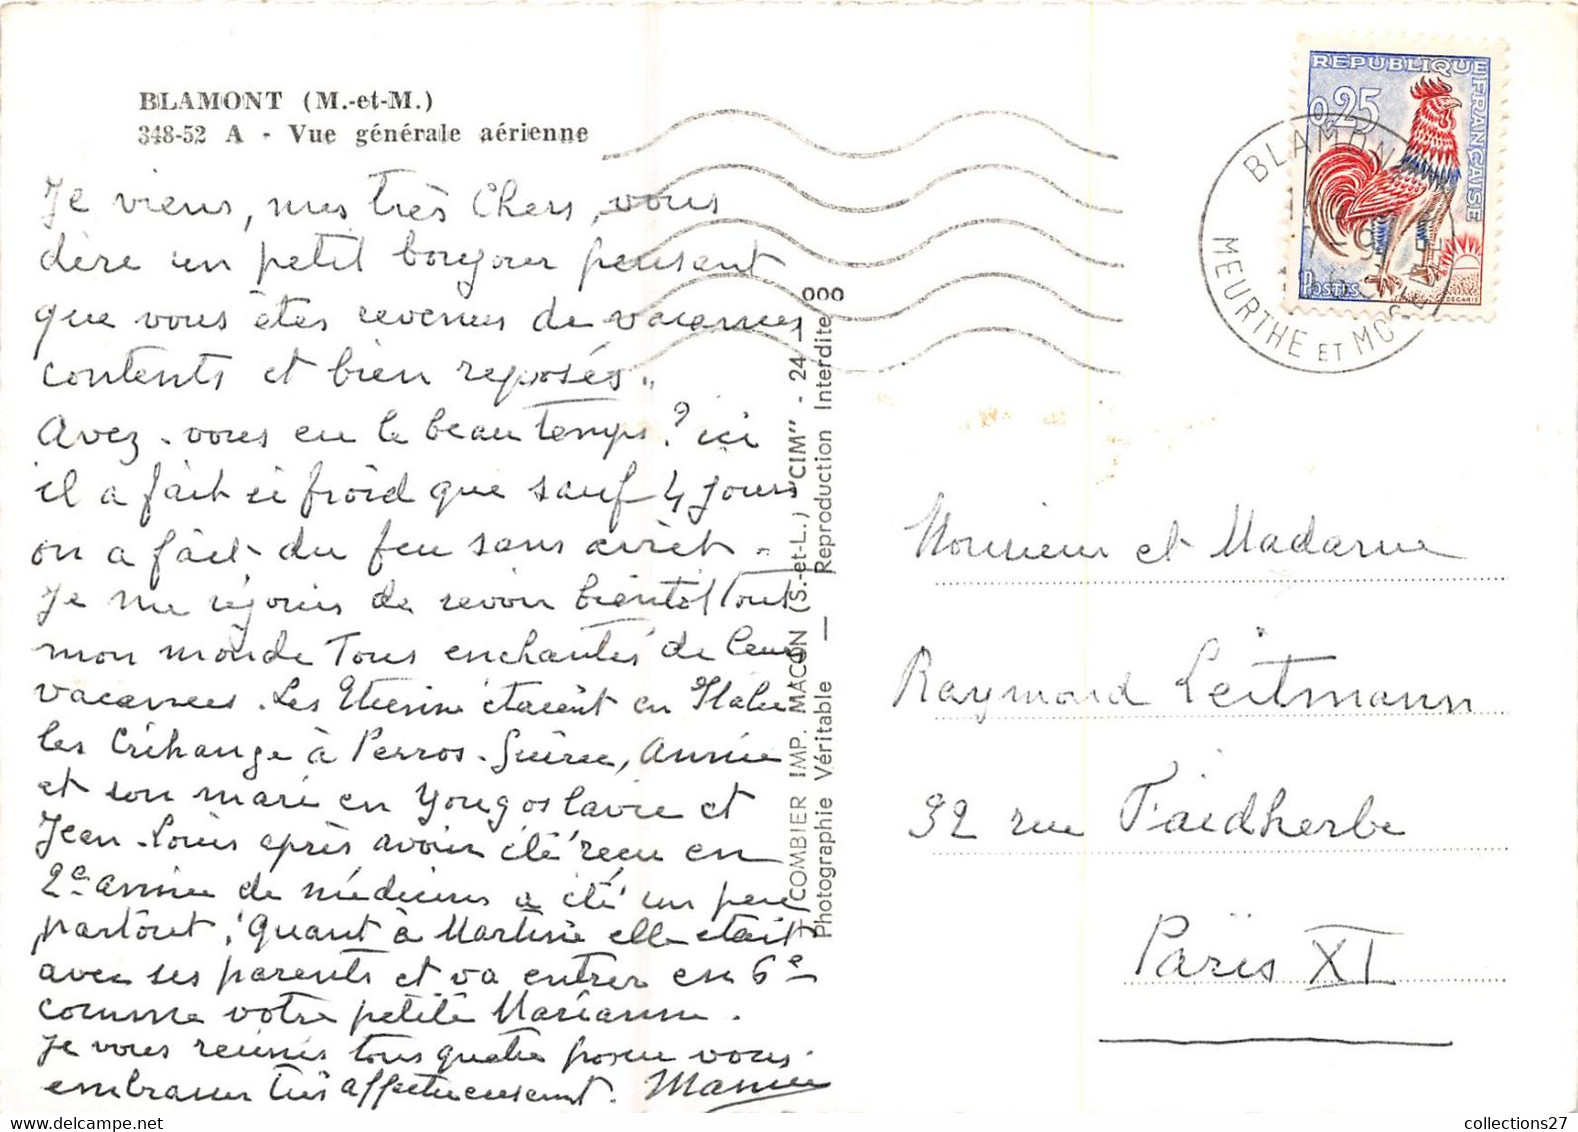 BLAMONT (M.-et-M.)
348-52 A - Vue générale aérienne
Je viens, mes très Chers, vous
dire un petit bonjour pensant
que vous êtes revenus de vacances
contents et bien reposés..
Avez-vous eu le beau temps? ici
il a fait si froid que sauf 4 jours
on a fait du feu sans arrêt.
Je me réjouis de revoir bientôt tout
mon monde tous enchantés de leurs
vacances. Les Etienne étaient en Italie
les Créhange à Perros-Guirec, Annie
et son mari en Yougoslavie et
Jean-Louis après avoir été reçu en
2e année de médecine a été un peu
partout. Quant à Martine elle était
avec ses parents et va entrer en 6e
comme votre petite Marianne.
Je vous réunis tous quatre pour vous
embrasser très affectueusement.
COMBIER IMP. MACON (S.-et-L.) "CIM" - 24 - ooo
Photographie Véritable — Reproduction Interdite
REPUBLIQUE FRANÇAISE
0,25
POSTES
DECARIS
BLAMONT
MEURTHE ET MOSELLE
Monsieur et Madame
Raymond Leitmann
92 rue Faidherbe
Paris XI
collections27